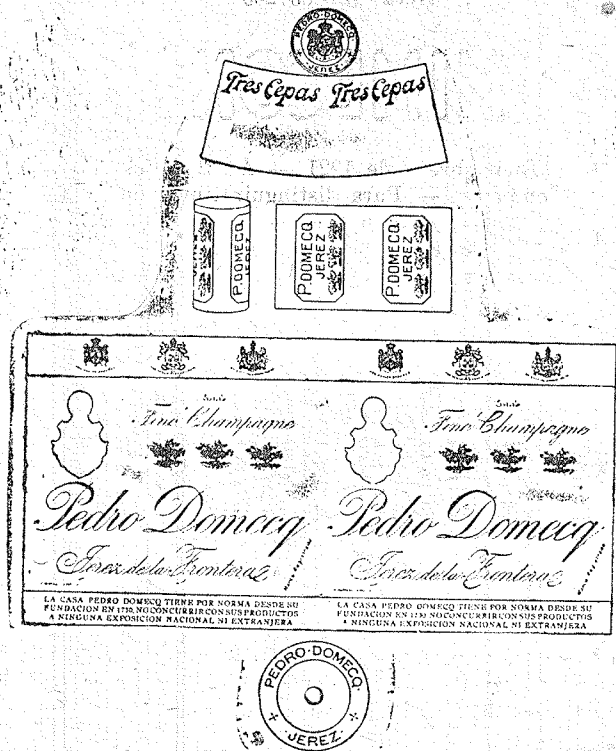 PEDRO·DOMECQ
·JEREZ·
Tres Cepas Tres Cepas
JEREZ
P. DOMECQ
JEREZ
P. DOMECQ
JEREZ
P. DOMECQ
JEREZ
Fine Champagne
Pedro Domecq
Jerez de la Frontera
LA CASA PEDRO DOMECQ TIENE POR NORMA DESDE SU
FUNDACION EN 1730, NO CONCURRIR CON SUS PRODUCTOS
A NINGUNA EXPOSICION NACIONAL NI EXTRANJERA
Fine Champagne
Pedro Domecq
Jerez de la Frontera
LA CASA PEDRO DOMECQ TIENE POR NORMA DESDE SU
FUNDACION EN 1730 NO CONCURRIR CON SUS PRODUCTOS
A NINGUNA EXPOSICION NACIONAL NI EXTRANJERA
PEDRO·DOMECQ·
·JEREZ·